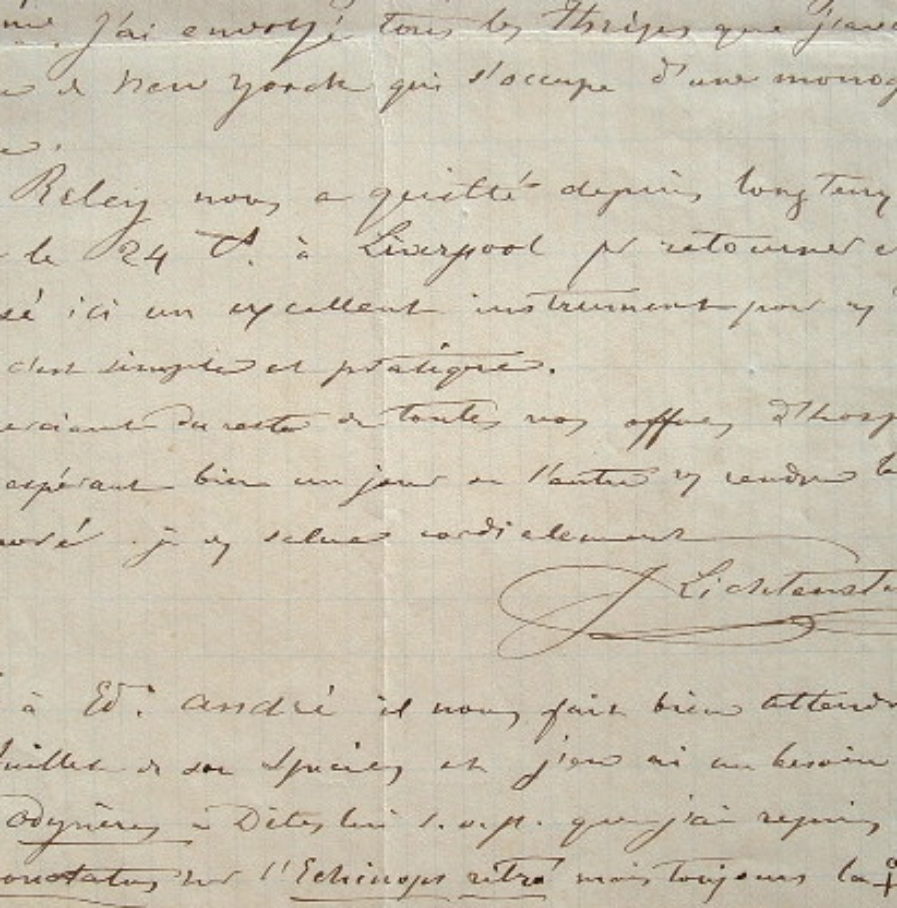 J'ai envoyé tous les Thrips que j'av
de New Yorck qui s'occupe d'une monog
Riley nous a quitté depuis longtemps
le 24 Ct. à Liverpool pr retourner
sé ici un excellent instrument pour
c'est simple et pratique.
merciant du reste de toutes vos offres d'hosp
espérant bien un jour ou l'autre vs rendre
je vs salue cordialement
J Lichtenst
à Ed. André il nous fait bien attend
de son Species et j'en ai un besoin
odynères - Dites lui s.v.p. que j'ai repris
sur l'Echinops ritro mais toujours la ♀